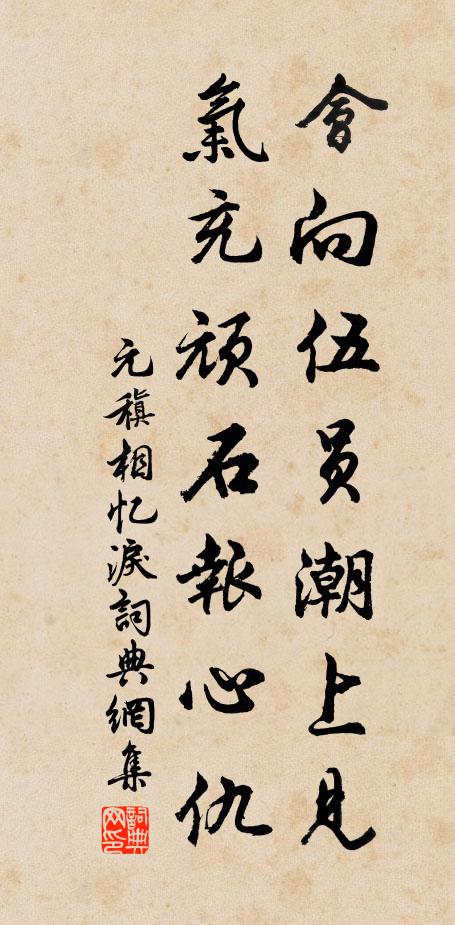 會向伍员潮上見
氣充頑石報心仇
元稹相忆淚詞典網集
詞典网印